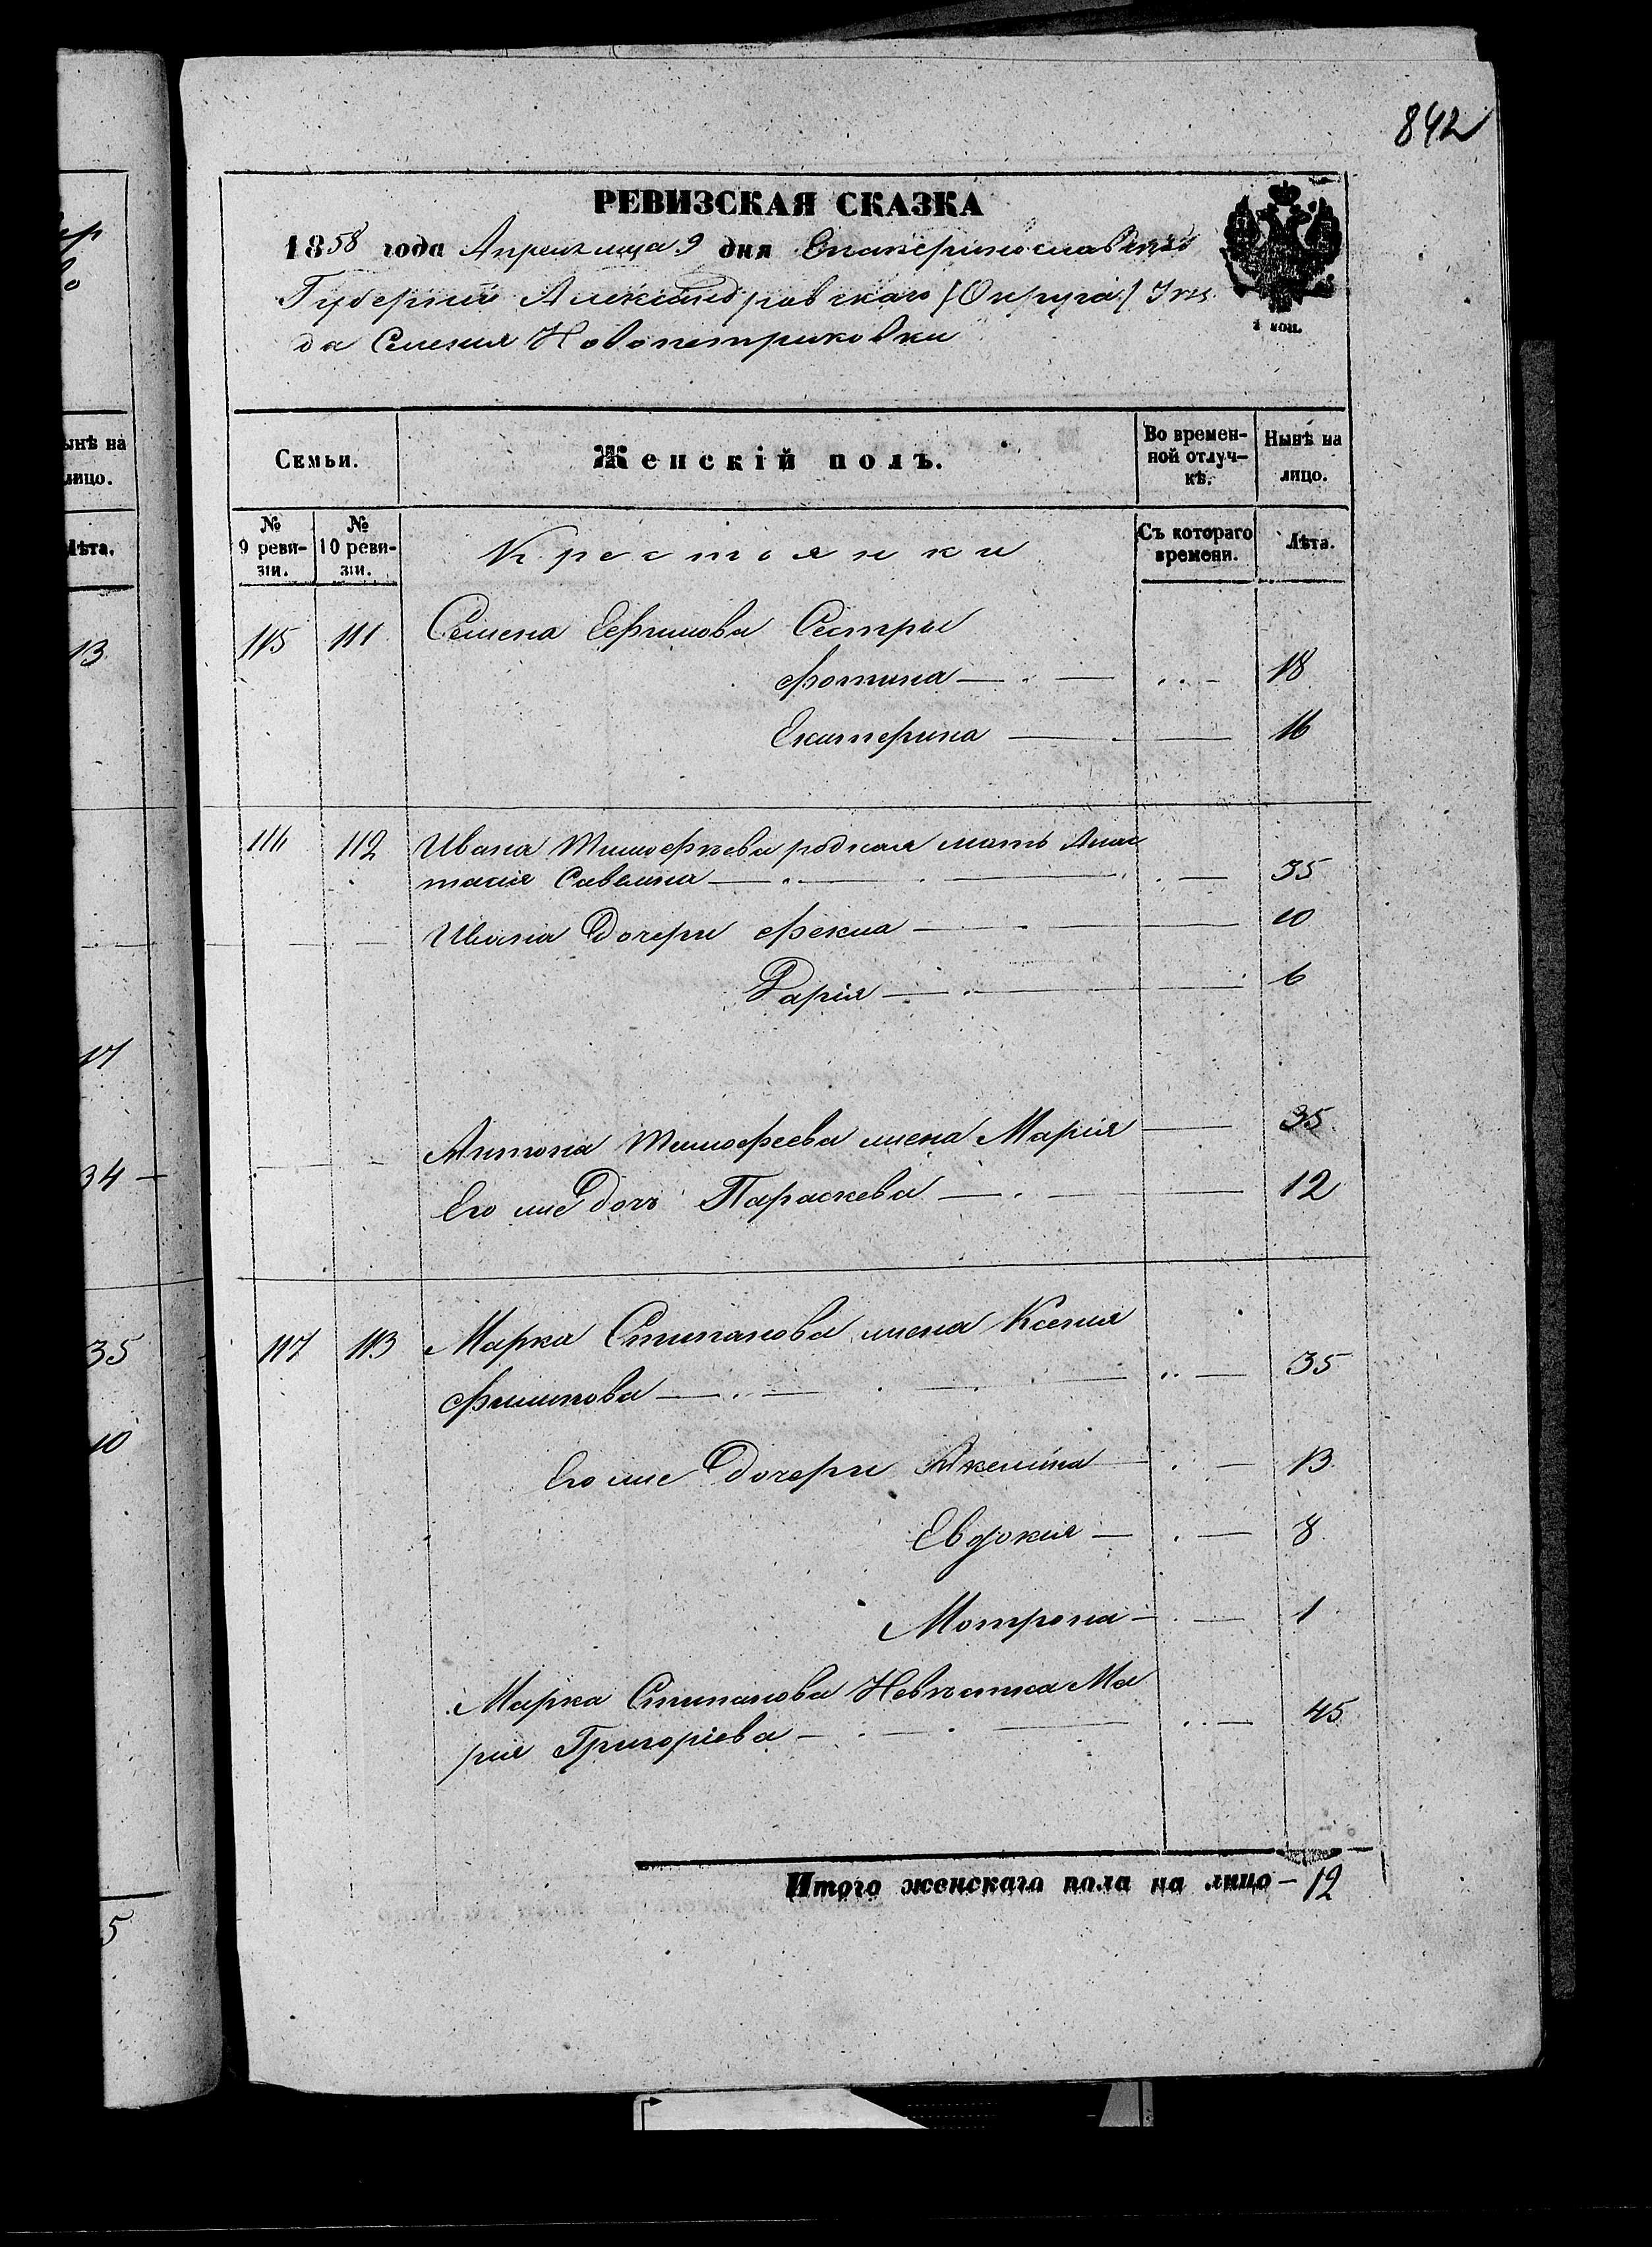 842
РЕВИЗСКАЯ СКАЗКА
1858 года Апреля мца 9 дня Екатеринославской
Губернии Александровскаго (Округа) Уѣз
да Селения Новопетриковки
1 коп.
Семьи.
Женскій полъ.
Во времен-
ной отлуч-
кѣ.
Нынѣ на
лицо.
№
9 реви-
зіи.
№
10 реви-
зіи.
Крестьянки
Съ котораго
времени.
Лѣта.
115 111 Семена Ефимова Сестры
Фотина 18
Екатерина 16
116 112 Ивана Тимофѣева родная мать Анас
тасия Савелина 35
Ивана Дочери Фекла 10
Дарія 6
Антона Тимофеева жена Марія 35
Его же Дочь Параскева 12
117 113 Марка Степанова жена Ксения
Филипова 35
Его же Дочери Акелина 13
Евдокия 8
Мотрона 1
Марка Степанова Невѣстка Ма
рия Григоріева 45
Итого женскаго пола на лицо - 12
ынѣ на
лицо.
Лѣта.
13
17
34
35
10
5